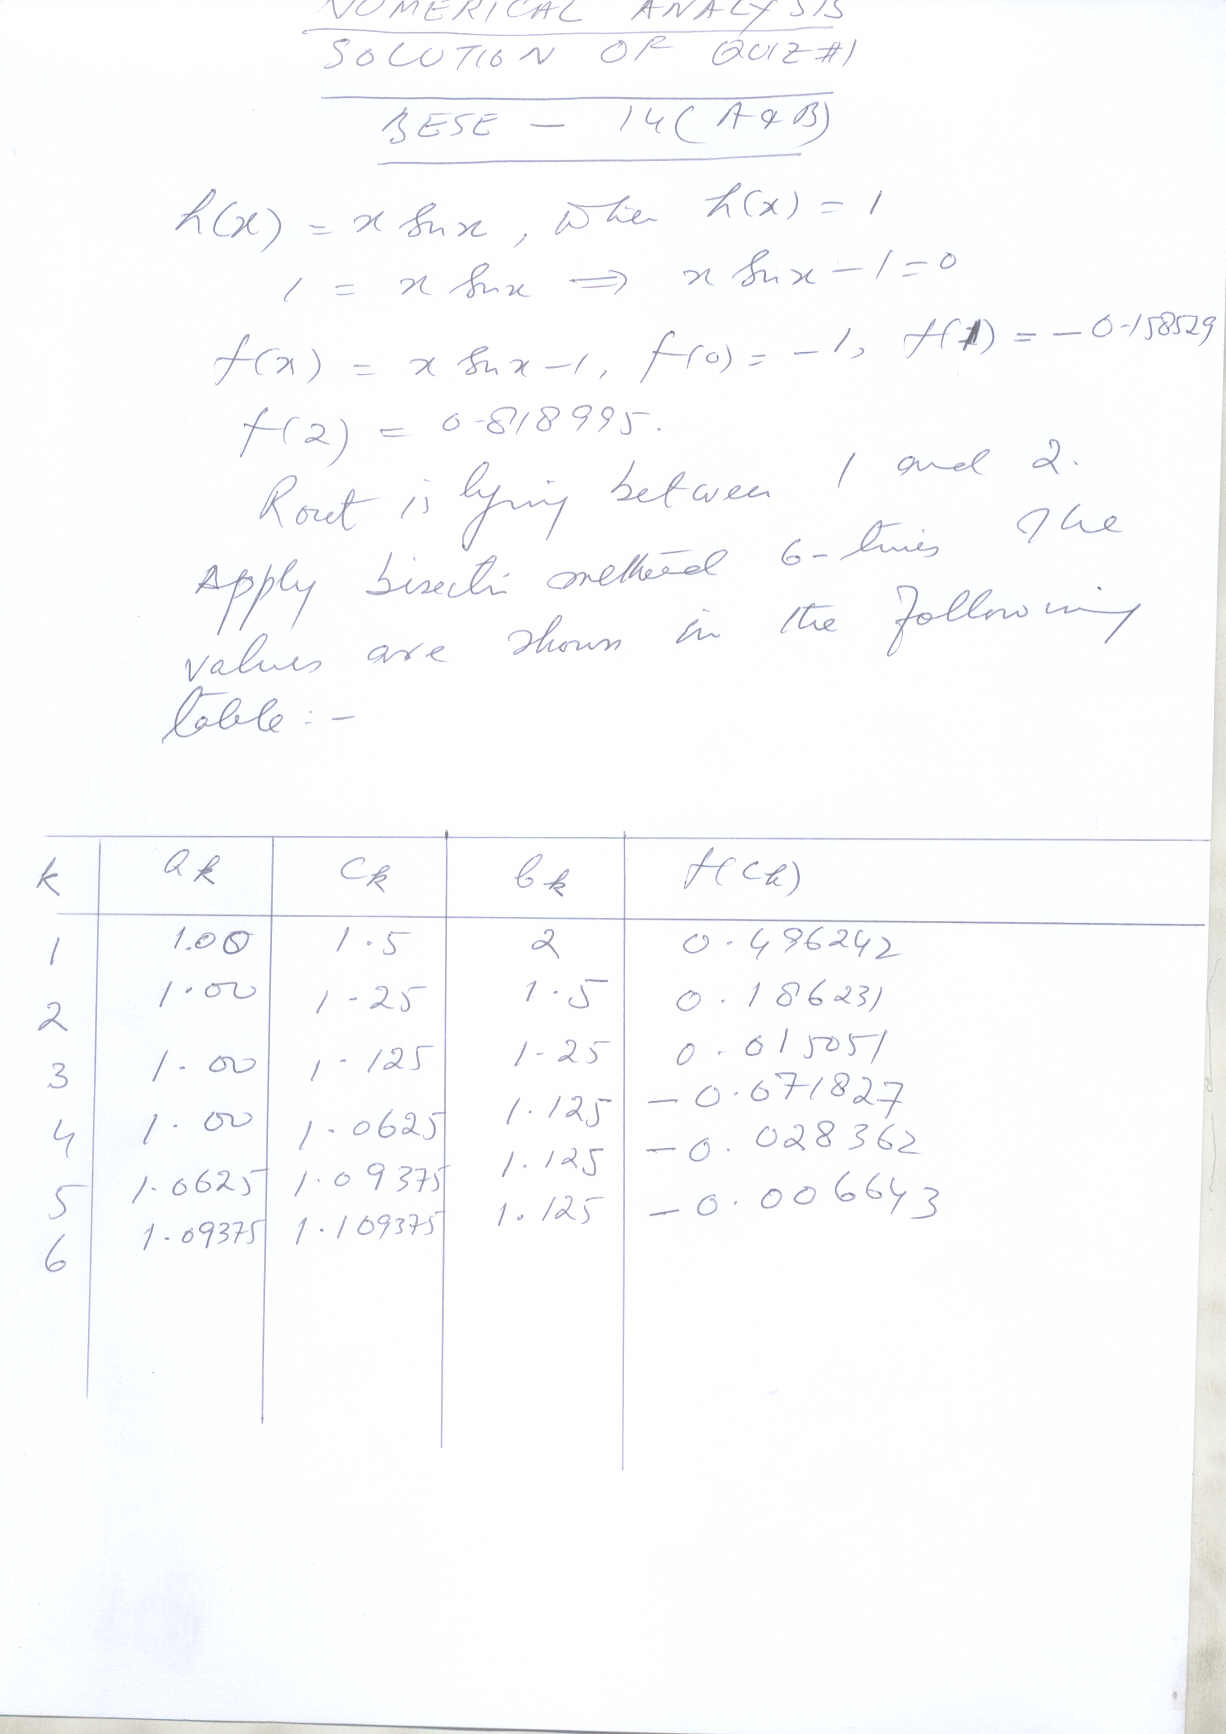 NUMERICAL ANALYSIS
SOLUTION OF QUIZ #1
BESE - 14 (A & B)
h(x) = x sin x, when h(x) = 1
1 = x sin x ⇒ x sin x - 1 = 0
f(x) = x sin x - 1, f(0) = -1, f(1) = -0.158529
f(2) = 0.818995.
Root is lying between 1 and 2.
Apply bisecti method 6-times The
values are shown in the following
table:-
k ak ck bk f(ck)
1 1.00 1.5 2 0.496242
2 1.00 1.25 1.5 0.186231
3 1.00 1.125 1.25 0.015051
4 1.00 1.0625 1.125 -0.071827
5 1.0625 1.09375 1.125 -0.028362
6 1.09375 1.109375 1.125 -0.006643